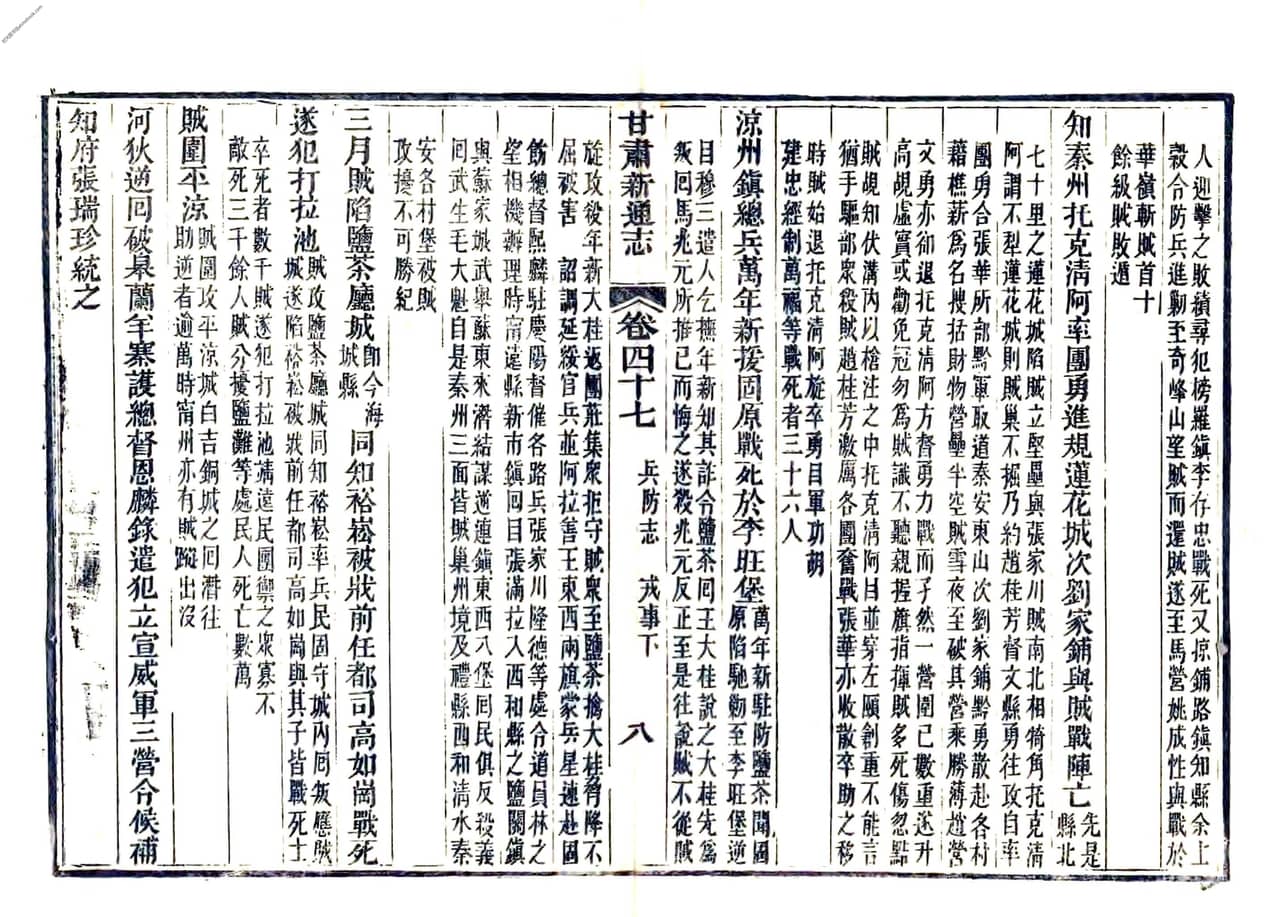 人迎擊之敗績尋犯榜羅鎮李存忠戰死又掠鋪路鎮知縣余上
穀令防兵進勦至奇峰山望賊而還賊遂至馬營姚成性與戰於
華嶺斬賊首十
餘級賊敗遁
知秦州托克清阿率團勇進規蓮花城次劉家鋪與賊戰陣亡
先是
縣北
七十里之蓮花城陷賊立堅壘與張家川賊南北相犄角托克清
阿謂不犁蓮花城則賊巢不掘乃約趙桂芳督文縣勇往攻自率
團勇合張華所部黔軍取道秦安東山次劉家鋪黔勇散赴各村
藉樵薪為名搜括財物營壘半空賊雪夜至破其營乘勝薄趙營
文勇亦卻退托克清阿方督勇力戰而孑然一營圍已數重遂升
高覘虛實或勸免冠勿為賊識不聽親握旗指揮賊多死傷忽點
賊覘知伏溝內以槍注之中托克清阿目並穿左頤創重不能言
猶手驅部眾殺賊趙桂芳激厲各團奮戰張華亦收散卒助之移
時賊始退托克清阿旋卒勇目軍功胡
建忠經制萬福等戰死者三十六人
涼州鎮總兵萬年新援固原戰死於李旺堡
萬年新駐防鹽茶聞固
原陷馳勦至李旺堡逆
目穆三遣人乞撫年新知其詐令鹽茶回王大桂說之大桂先為
叛回馬兆元所推已而悔之遂殺兆元反正至是往說賊不從賊
甘肅新通志
卷四十七
兵防志
戎事下
八
旋攻殺年新大桂返團莊集眾拒守賊眾至鹽茶擒大桂脅降不
屈被害
詔調延綏官兵並阿拉善王東西兩旗蒙兵星速赴固
飭總督熙麟駐慶陽督催各路兵張家川隆德等處令道員林之
望相機辦理時甯遠縣新市鎮回目張滿拉入西和縣之鹽關鎮
與蘇家城武舉蘇東來潛結謀逆連鎮東西八堡回民俱反殺義
回武生毛大魁自是秦州三面皆賊巢州境及禮縣西和清水秦
安各村堡被賊
攻擾不可勝紀
三月賊陷鹽茶廳城
即今海
城縣
同知裕崧被戕前任都司高如崗戰死
遂犯打拉池
賊攻鹽茶廳城同知裕崧率兵民固守城內回叛應賊
城遂陷裕崧破戕前任都司高如崗與其子皆戰死士
卒死者數千賊遂犯打拉池靖遠民團禦之眾寡不
敵死三千餘人賊分擾鹽灘等處民人死亡數萬
賊圍平涼
賊圍攻平涼城白吉銅城之回潛往
助逆者逾萬時甯州亦有賊蹤出沒
河狄逆回破皋蘭年寨護總督恩麟錄遣犯立宣威軍三營令候補
知府張瑞珍統之